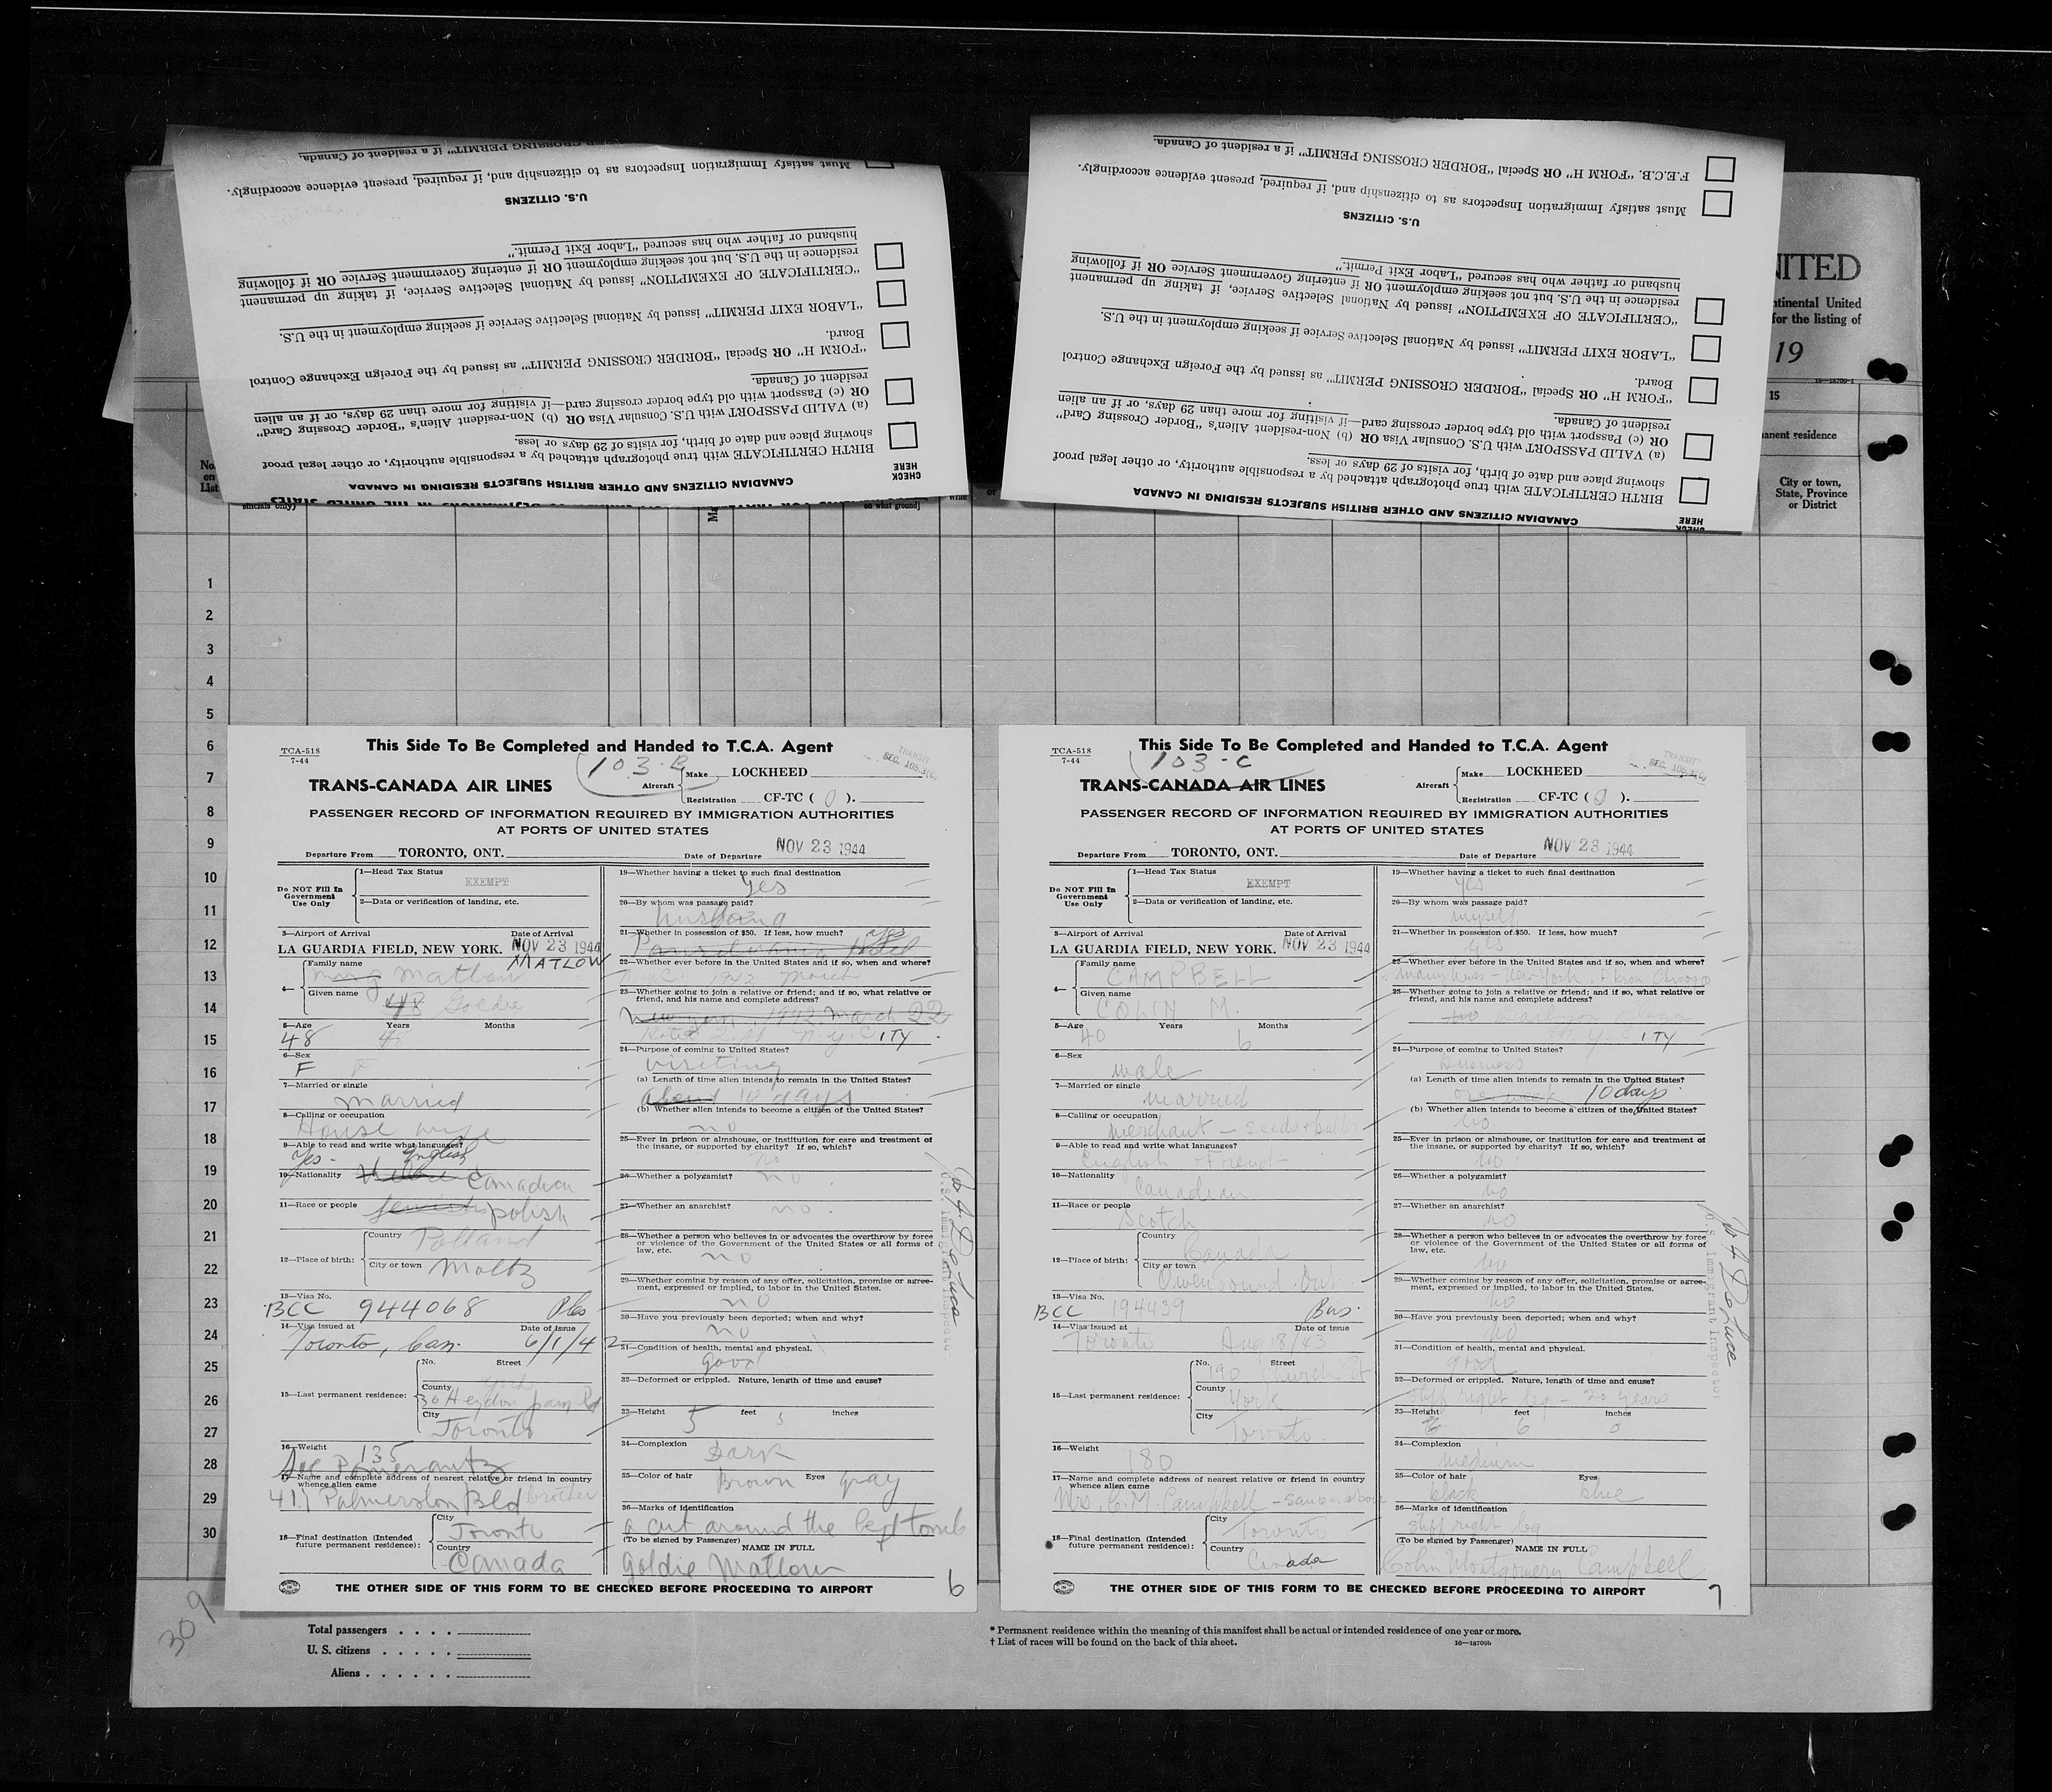 F.E.C.B. "FORM H" OR Special "BORDER CROSSING PERMIT" if a resident of Canada.
Must satisfy Immigration Inspectors as to citizenship and, if required, present evidence accordingly.
U.S. CITIZENS
husband or father who has secured "Labor Exit Permit."
residence in the U.S. but not seeking employment OR if entering Government Service OR if following
"CERTIFICATE OF EXEMPTION" issued by National Selective Service, if taking up permanent
"LABOR EXIT PERMIT" issued by National Selective Service if seeking employment in the U.S.
Board.
"FORM H" OR Special "BORDER CROSSING PERMIT" as issued by the Foreign Exchange Control
resident of Canada.
OR (c) Passport with old type border crossing card—if visiting for more than 29 days, or if an alien
(a) VALID PASSPORT with U.S. Consular Visa OR (b) Non-resident Alien's "Border Crossing Card"
showing place and date of birth, for visits of 29 days or less.
BIRTH CERTIFICATE with true photograph attached by a responsible authority, or other legal proof
CHECK HERE
CANADIAN CITIZENS AND OTHER BRITISH SUBJECTS RESIDING IN CANADA
CROSSING PERMIT" if a resident of Canada.
Must satisfy Immigration Inspectors as to citizenship and, if required, present evidence accordingly.
U.S. CITIZENS
husband or father who has secured "Labor Exit Permit."
residence in the U.S. but not seeking employment OR if entering Government Service OR if following
"CERTIFICATE OF EXEMPTION" issued by National Selective Service, if taking up permanent
"LABOR EXIT PERMIT" issued by National Selective Service if seeking employment in the U.S.
Board.
"FORM H" OR Special "BORDER CROSSING PERMIT" as issued by the Foreign Exchange Control
resident of Canada.
OR (c) Passport with old type border crossing card—if visiting for more than 29 days, or if an alien
(a) VALID PASSPORT with U.S. Consular Visa OR (b) Non-resident Alien's "Border Crossing Card"
showing place and date of birth, for visits of 29 days or less.
BIRTH CERTIFICATE with true photograph attached by a responsible authority, or other legal proof
CHECK HERE
CANADIAN CITIZENS AND OTHER BRITISH SUBJECTS RESIDING IN CANADA
NITED
ntinental United
for the listing of
19
15
anent residence
City or town,
State, Province
or District
No.
on
List
officials only)
on what ground]
1
2
3
4
5
6
7
8
9
10
11
12
13
14
15
16
17
18
19
20
21
22
23
24
25
26
27
28
29
30
TCA-518
7-44
This Side To Be Completed and Handed to T.C.A. Agent
103-B
TRANSIT
SEC. 105.3(C)
TRANS-CANADA AIR LINES
Aircraft
Make LOCKHEED
Registration CF-TC ( 0 ).
PASSENGER RECORD OF INFORMATION REQUIRED BY IMMIGRATION AUTHORITIES
AT PORTS OF UNITED STATES
Departure From TORONTO, ONT.
Date of Departure NOV 23 1944
Do NOT Fill In
Government
Use Only
1—Head Tax Status
EXEMPT
2—Data or verification of landing, etc.
3—Airport of Arrival
Date of Arrival
LA GUARDIA FIELD, NEW YORK. NOV 23 1944
MATLOW
4—
Family name
Matlow
Given name
Goldie
5—Age Years Months
48 48
6—Sex
F F
7—Married or single
married
8—Calling or occupation
House wife
9—Able to read and write what languages?
Yes - English
10—Nationality Canadian
11—Race or people Jewish polish
12—Place of birth:
Country
Polland
City or town Moltz
13—Visa No.
BCC 944068 Ples
14—Visa issued at Date of Issue
Toronto, Can. 6/1/42
15—Last permanent residence:
No. Street
County York
30 Heydon park Rd
City
Toronto
16—Weight 135
Pomerantz
17—Name and complete address of nearest relative or friend in country
whence alien came
411 Palmerston Bld brother
18—Final destination (Intended
future permanent residence):
City
Toronto
Country
Canada
19—Whether having a ticket to such final destination
Yes
20—By whom was passage paid?
husband
21—Whether in possession of $50. If less, how much? Yes
Pensylvania Hotel
22—Whether ever before in the United States and if so, when and where?
1942
23—Whether going to join a relative or friend; and if so, what relative or
friend, and his name and complete address?
new york 1942 march 22
N.Y. CITY
24—Purpose of coming to United States?
visiting
(a) Length of time alien intends to remain in the United States?
about 10 days
(b) Whether alien intends to become a citizen of the United States?
no
25—Ever in prison or almshouse, or institution for care and treatment of
the insane, or supported by charity? If so, which?
no
26—Whether a polygamist? no
27—Whether an anarchist? no
28—Whether a person who believes in or advocates the overthrow by force
or violence of the Government of the United States or all forms of
law, etc.
no
29—Whether coming by reason of any offer, solicitation, promise or agree-
ment, expressed or implied, to labor in the United States.
no
30—Have you previously been deported; when and why?
no
31—Condition of health, mental and physical.
good
32—Deformed or crippled. Nature, length of time and cause?
33—Height 5 feet 3 inches
34—Complexion
Dark
35—Color of hair Brown Eyes gray
36—Marks of identification
a cut around the left tomb
(To be signed by Passenger) NAME IN FULL
Goldie Matlow
U.S. Immigrant Inspector
THE OTHER SIDE OF THIS FORM TO BE CHECKED BEFORE PROCEEDING TO AIRPORT
6
TCA-518
7-44
This Side To Be Completed and Handed to T.C.A. Agent
103-C
TRANSIT
SEC. 105.3(C)
TRANS-CANADA AIR LINES
Aircraft
Make LOCKHEED
Registration CF-TC ( 0 ).
PASSENGER RECORD OF INFORMATION REQUIRED BY IMMIGRATION AUTHORITIES
AT PORTS OF UNITED STATES
Departure From TORONTO, ONT.
Date of Departure NOV 23 1944
Do NOT Fill In
Government
Use Only
1—Head Tax Status
EXEMPT
2—Data or verification of landing, etc.
3—Airport of Arrival
Date of Arrival
LA GUARDIA FIELD, NEW YORK. NOV 23 1944
4—
Family name
CAMPBELL
Given name
COLIN M.
5—Age Years Months
40 6
6—Sex
male
7—Married or single
married
8—Calling or occupation
merchant - seeds & bulbs
9—Able to read and write what languages?
English & French
10—Nationality
Canadian
11—Race or people
Scotch
12—Place of birth:
Country
Canada
City or town
Owen Sound Ont.
13—Visa No.
BCC 194439 Bus.
14—Visa issued at Date of Issue
Toronto Aug 18/43
15—Last permanent residence:
No. Street
190 Church St
County
York
City
Toronto.
16—Weight
180
17—Name and complete address of nearest relative or friend in country
whence alien came
Mrs. C. M. Campbell - same as above
18—Final destination (Intended
future permanent residence):
City
Toronto
Country
Canada
19—Whether having a ticket to such final destination
yes
20—By whom was passage paid?
myself
21—Whether in possession of $50. If less, how much?
yes
22—Whether ever before in the United States and if so, when and where?
many times - New York, Akron, Chicago
23—Whether going to join a relative or friend; and if so, what relative or
friend, and his name and complete address?
no
N.Y. CITY
24—Purpose of coming to United States?
business
(a) Length of time alien intends to remain in the United States?
one week 10 days
(b) Whether alien intends to become a citizen of the United States?
no
25—Ever in prison or almshouse, or institution for care and treatment of
the insane, or supported by charity? If so, which?
no
26—Whether a polygamist?
no
27—Whether an anarchist?
no
28—Whether a person who believes in or advocates the overthrow by force
or violence of the Government of the United States or all forms of
law, etc.
no
29—Whether coming by reason of any offer, solicitation, promise or agree-
ment, expressed or implied, to labor in the United States.
no
30—Have you previously been deported; when and why?
no
31—Condition of health, mental and physical.
good
32—Deformed or crippled. Nature, length of time and cause?
stiff right leg - 20 years
33—Height feet inches
6 0
34—Complexion
medium
35—Color of hair Eyes
black blue
36—Marks of identification
stiff right leg
(To be signed by Passenger) NAME IN FULL
Colin Montgomery Campbell
U.S. Immigrant Inspector
THE OTHER SIDE OF THIS FORM TO BE CHECKED BEFORE PROCEEDING TO AIRPORT
7
309
Total passengers . . . .
U. S. citizens . . . . .
Aliens . . . . . .
* Permanent residence within the meaning of this manifest shall be actual or intended residence of one year or more.
† List of races will be found on the back of this sheet.
16—18700b